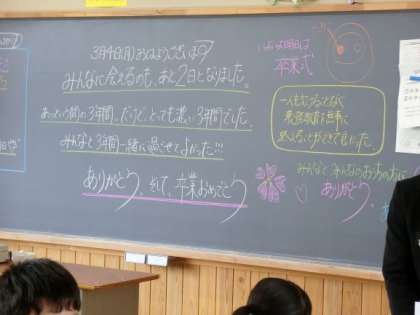 3月4日(月)おはようございます
みんなに会えるのも、あと2日となりました。
あっという間の3年間。だけど、とっても濃い3年間でした。
みんなと3年間一緒に過ごせてよかった!!!
ありがとう そして、卒業おめでとう
いよいよ明日は
卒業式
一人もかけることなく
義務教育を無事に
終えることができそうでした。
みんなと みんなのおうちの方に
ありがとう。